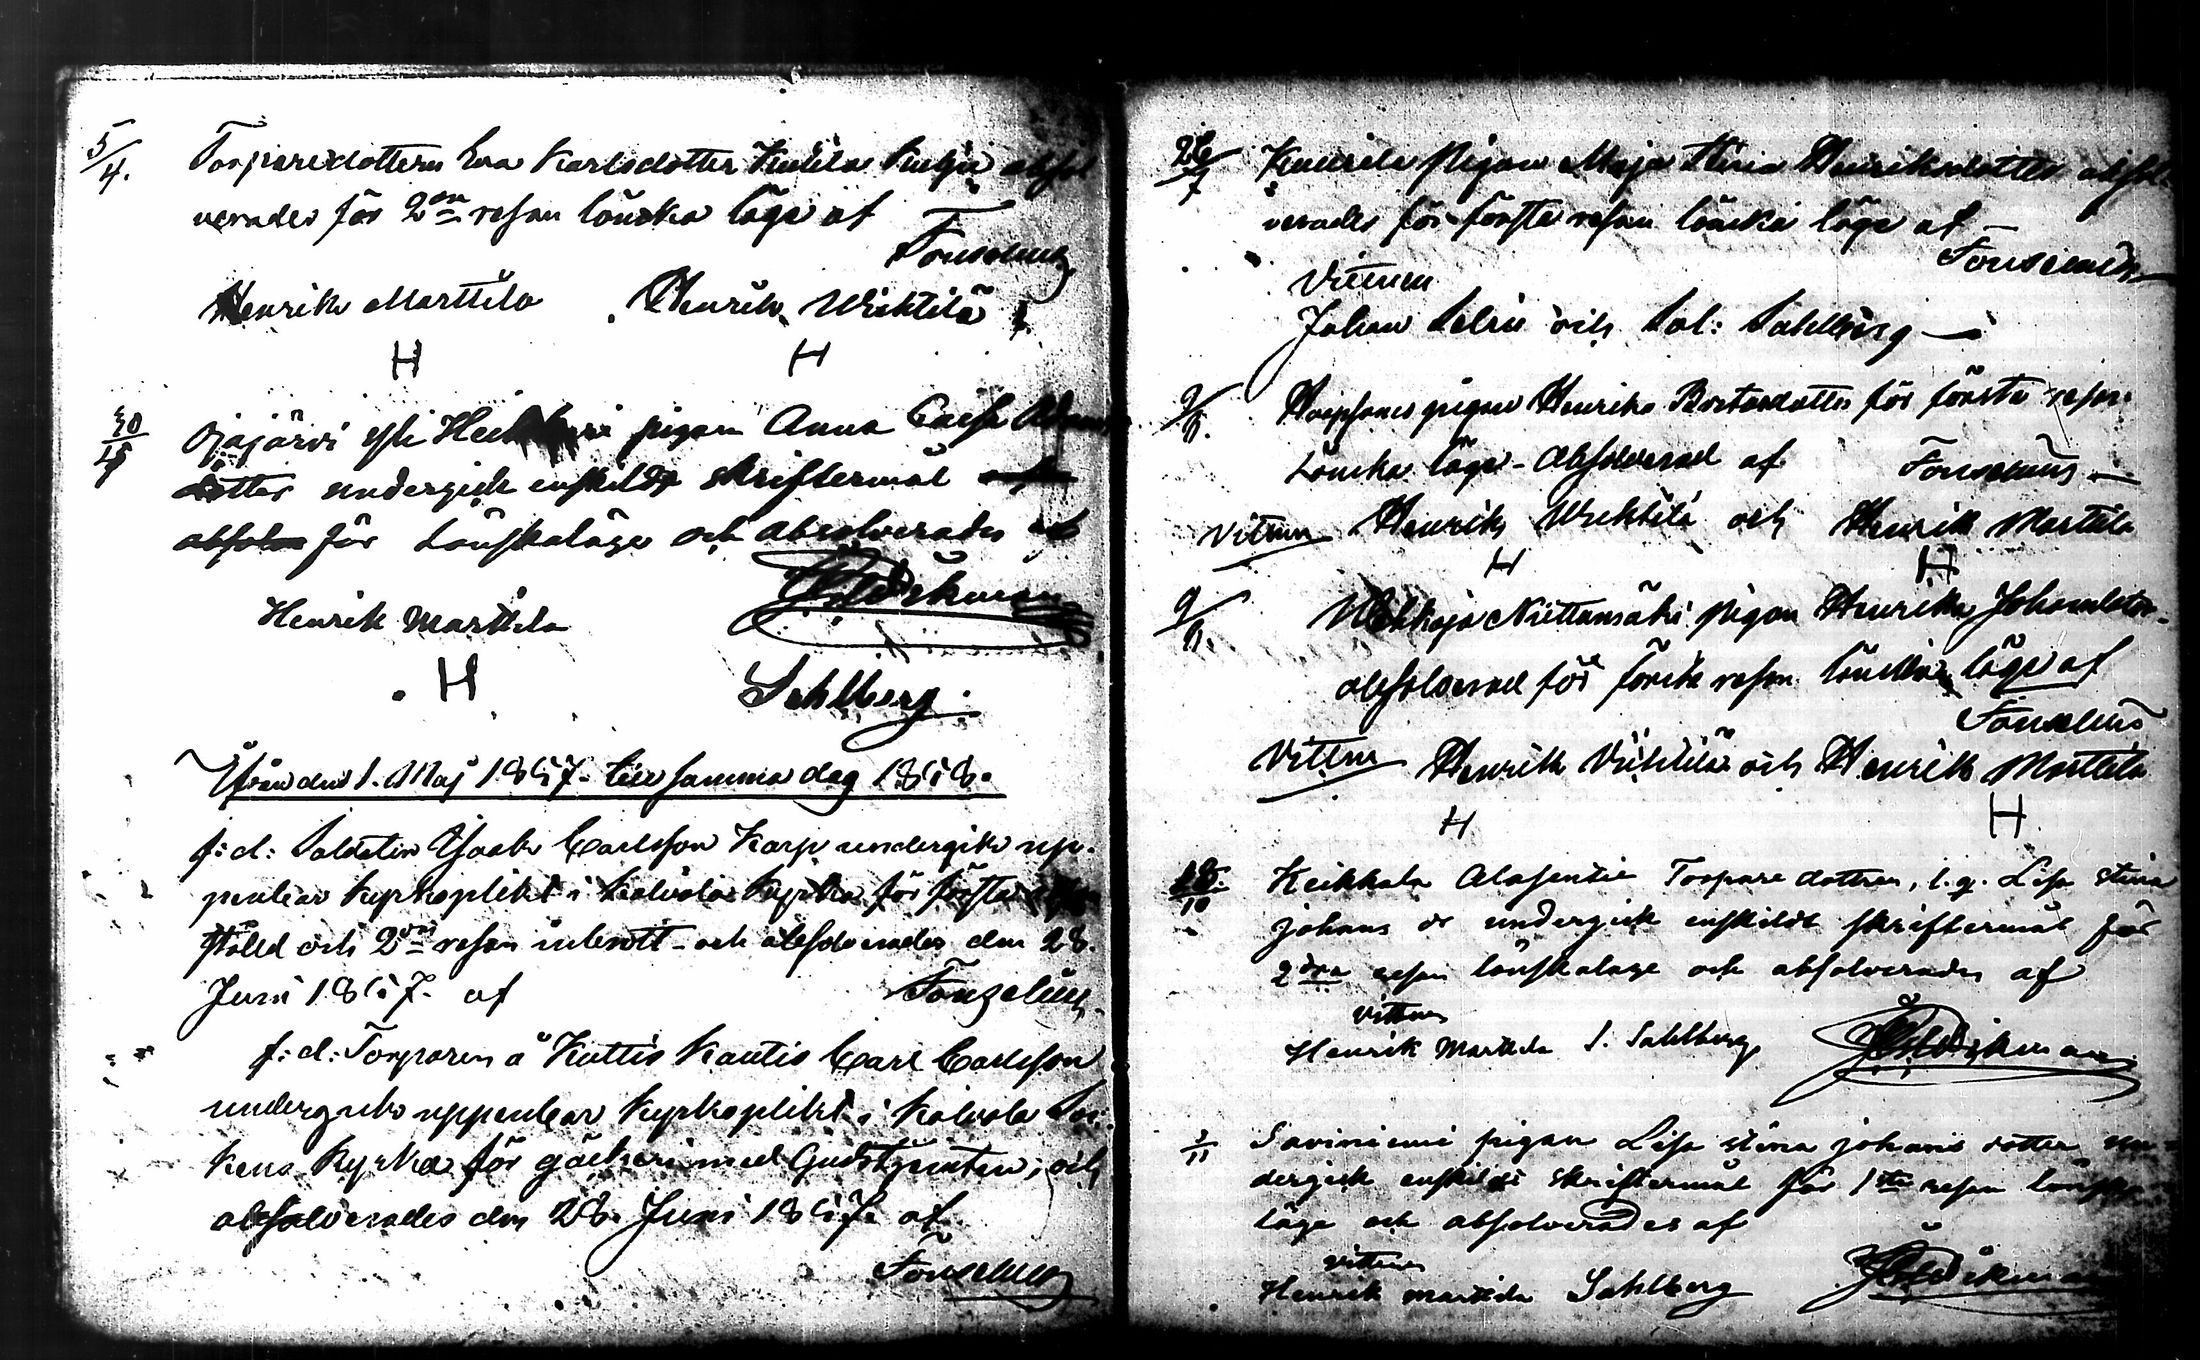 5/4. Torparedottern Eva Karlsdotter Kutila absol
verades för 2dra resan lönska läge af
Tonselius
Henrik Marttila Henrik Wiektilä
H H
30/4 Ojajärvi yli pigan Anna Caisa
dotter undergick enskildt skriftermål
för Lönskaläge och absolverades af
Henrik Marttila
H Sahlberg.
Ifrån den 1. Maj 1857 till samma dag 1858.
f:d: Soldaten Isaak Carlsson Karp undergik up-
penbar Kyrkoplikt i Kalvola Kyrka för första
stöld och 2dra resan inbrott och absolverades den 28.
Juni 1857. af Tonzelius
f:d: Torparen å Kuttis Kautis Carl Carlsson
undergick uppenbar Kyrkoplikt i Kalvola Soc-
kens Kyrka för gäckeri med Gudstjensten, och
absolverades den 28. Juni 1857. af
Tonselius
26/7 Kuurila Pigan Maja Stina Henriksdotter absol-
verades för första resan lönska läge af
Tonselius
Vittnen
Johan Selin och Sal: Sahlberg
9/8. pigan Henrika för första resan
Lönska läge absolverad af Tonselius
Vittnen Henrik Wiektilä och Henrik Marttila
H H
9/8. Niittumäki pigan Henrika Johansdotter
absolverad för första resan lönska läge af
Tonselius
Vittne Henrik Viektilä och Henrik Marttila
H H
18/10 Keikkala Alasentie Torpare dottren, l.g. Lisa Stina
Johans dr undergick enskildt skriftermål för
2dra resan lönskaläge och absolverades af
vittnen
Henrik Marttila S. Sahlberg
1/11 Saviniemi pigan Lisa Stina Johans dotter un-
dergick enskildt skriftermål för 1sta resan lönska
läge och absolverades af
vittnen
Henrik Marttila Sahlberg